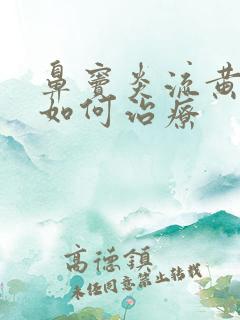 鼻窦炎流黄
如何治疗
高德镇
未经同意禁止转载